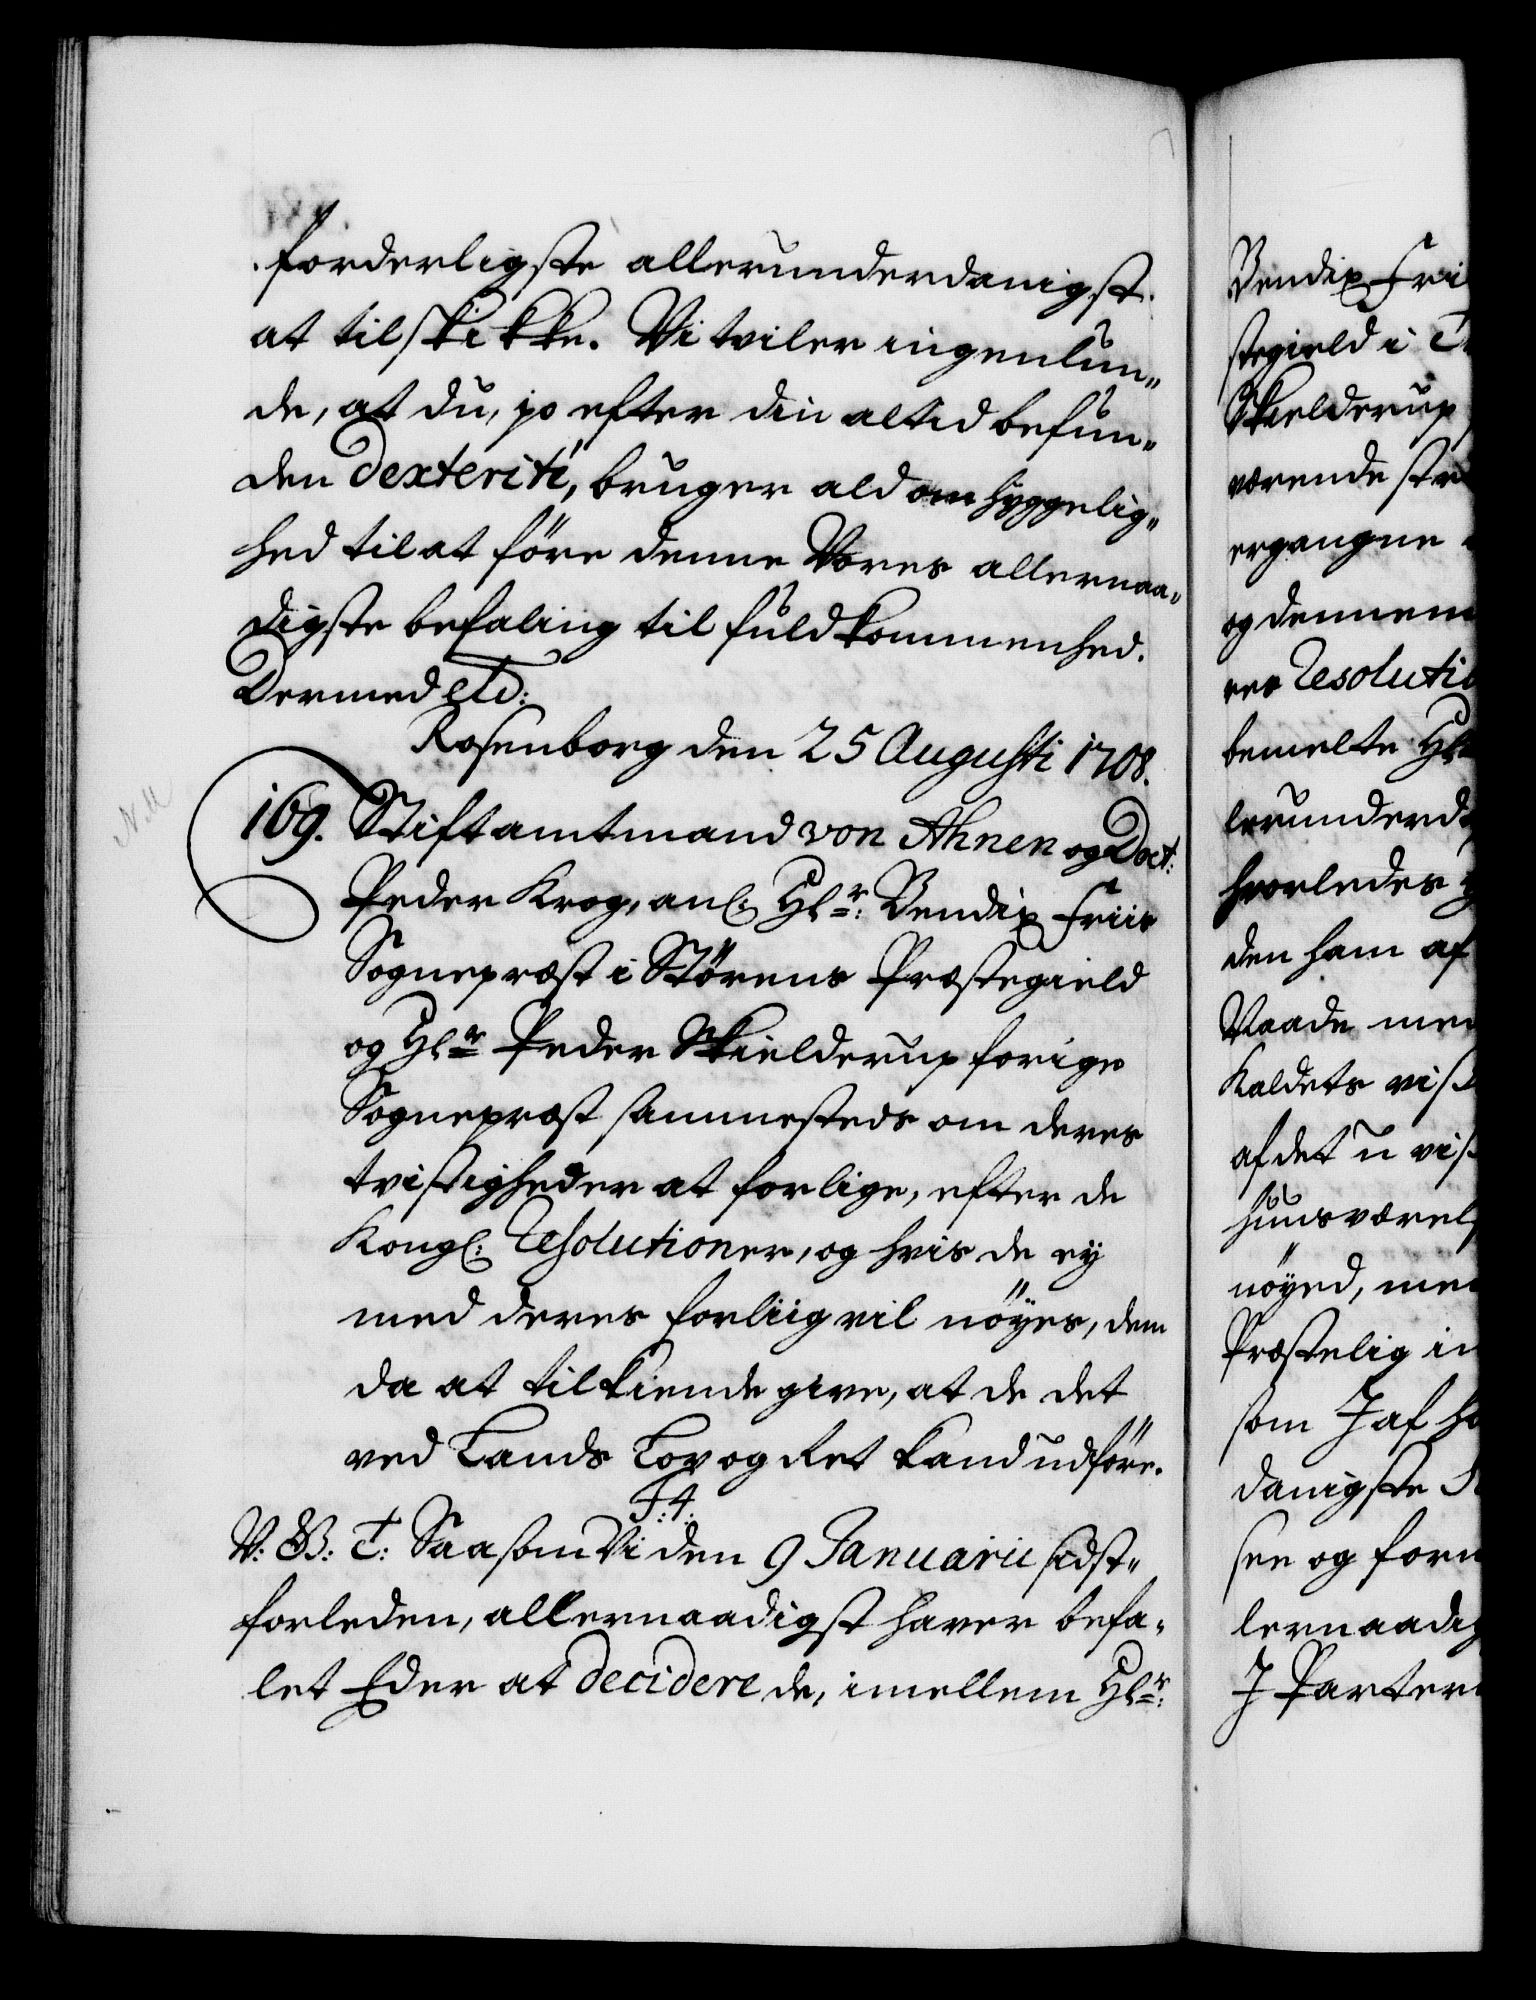 forderligste allerunderdanigst.
at tilskikke. Vi tviler ingenlun„
de, at du, jo efter din altid befun„
den dexterité, bruger ald omhyggelig„
hed til at före denne Vores allernaa„
digste befaling til fuldkommenhed.
Dermed etc:
Rosenborg den 25 Augusti 1708.
169. Stiftamtmand von Ahnen og Doct:
Peder Krog, anl: Hl<sup>r</sup>: Bendix Friis
Sognepræst i Störens Præstegield
og Hl<sup>r</sup> Peder Skielderup forige
Sognepræst sammesteds om deres
tvistigheder at forlige, efter de
Kongl: Resolutioner, og hvis de ey
med deres forliig vil nöyes, dem
da at tilkiende give, at de det
ved Lands Lov og Ret kand udföre.
F: 4:
V: G: T: Saasom Vi den 9 Januarii sidst„
forleden, allernaadigst haver befa„
let Eder at decidere de, imellem Hl<sup>r</sup>:
Bendix Fri
stegield i
Skielderup
værende str
ergangne
og dennem
res Resoluti
bemelte Hl
lerunderd
hvorledes
den ham af
Naade me
Kaldets vis
af det u vis
huusværels
nöyed, me
Præstelig in
som I af h
danigste
see og for
lernaadig
I Parter